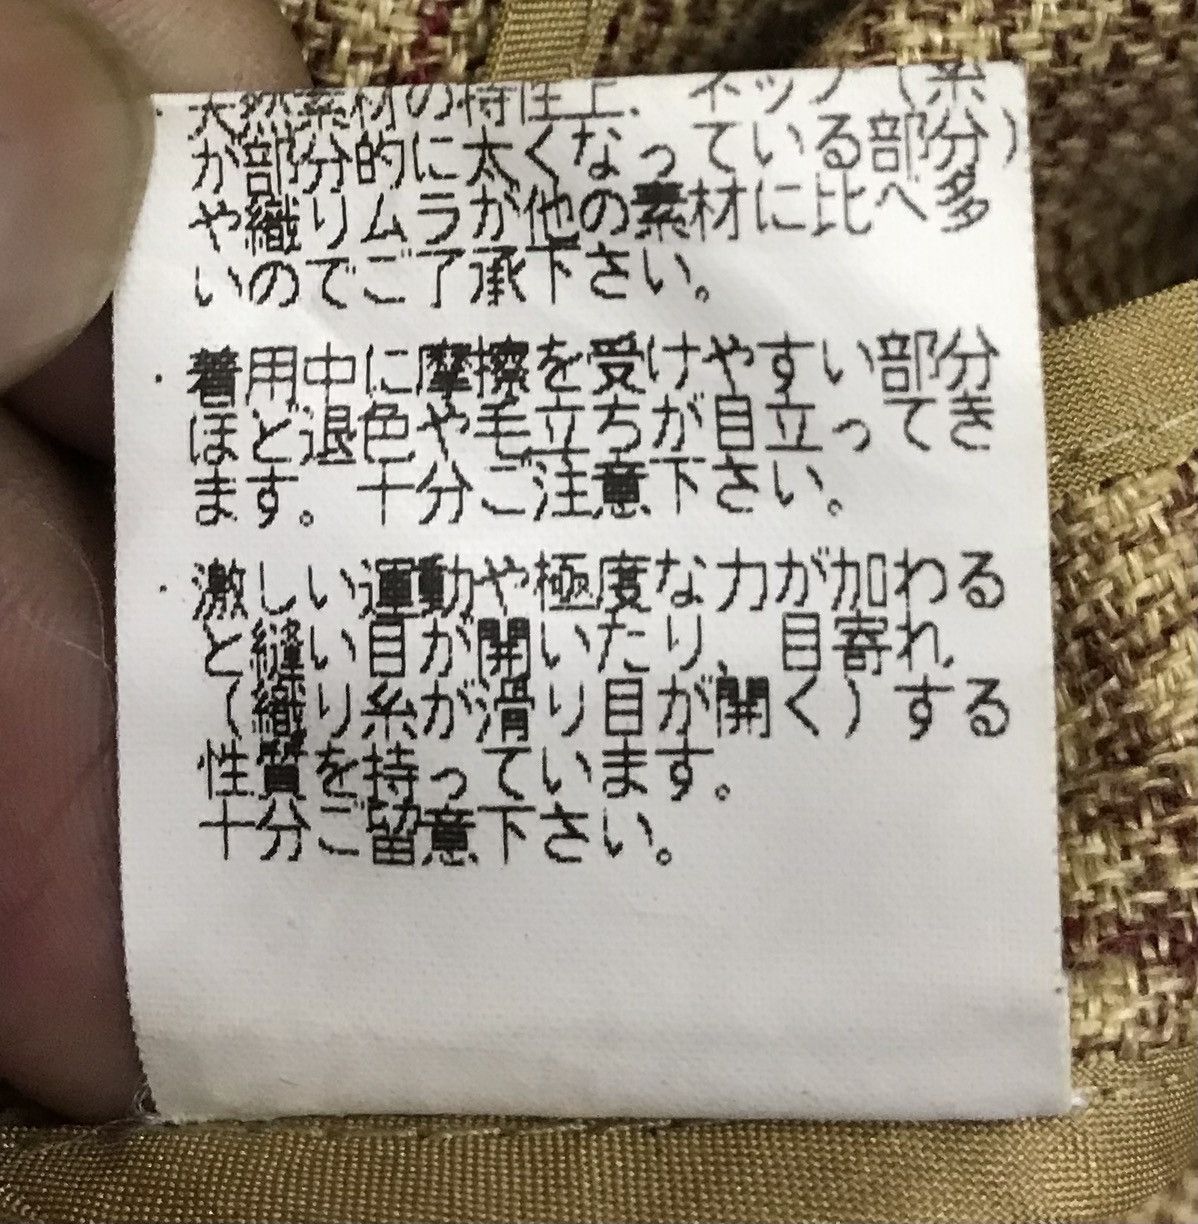 ・天然素材の特性上、ネップ（糸
が部分的に太くなっている部分）
や織りムラが他の素材に比べ多
いのでご了承下さい。
・着用中に摩擦を受けやすい部分
ほど退色や毛立ちが目立ってき
ます。十分ご注意下さい。
・激しい運動や極度な力が加わる
と縫い目が開いたり、目寄れ
（織り糸が滑り目が開く）する
性質を持っています。
十分ご留意下さい。